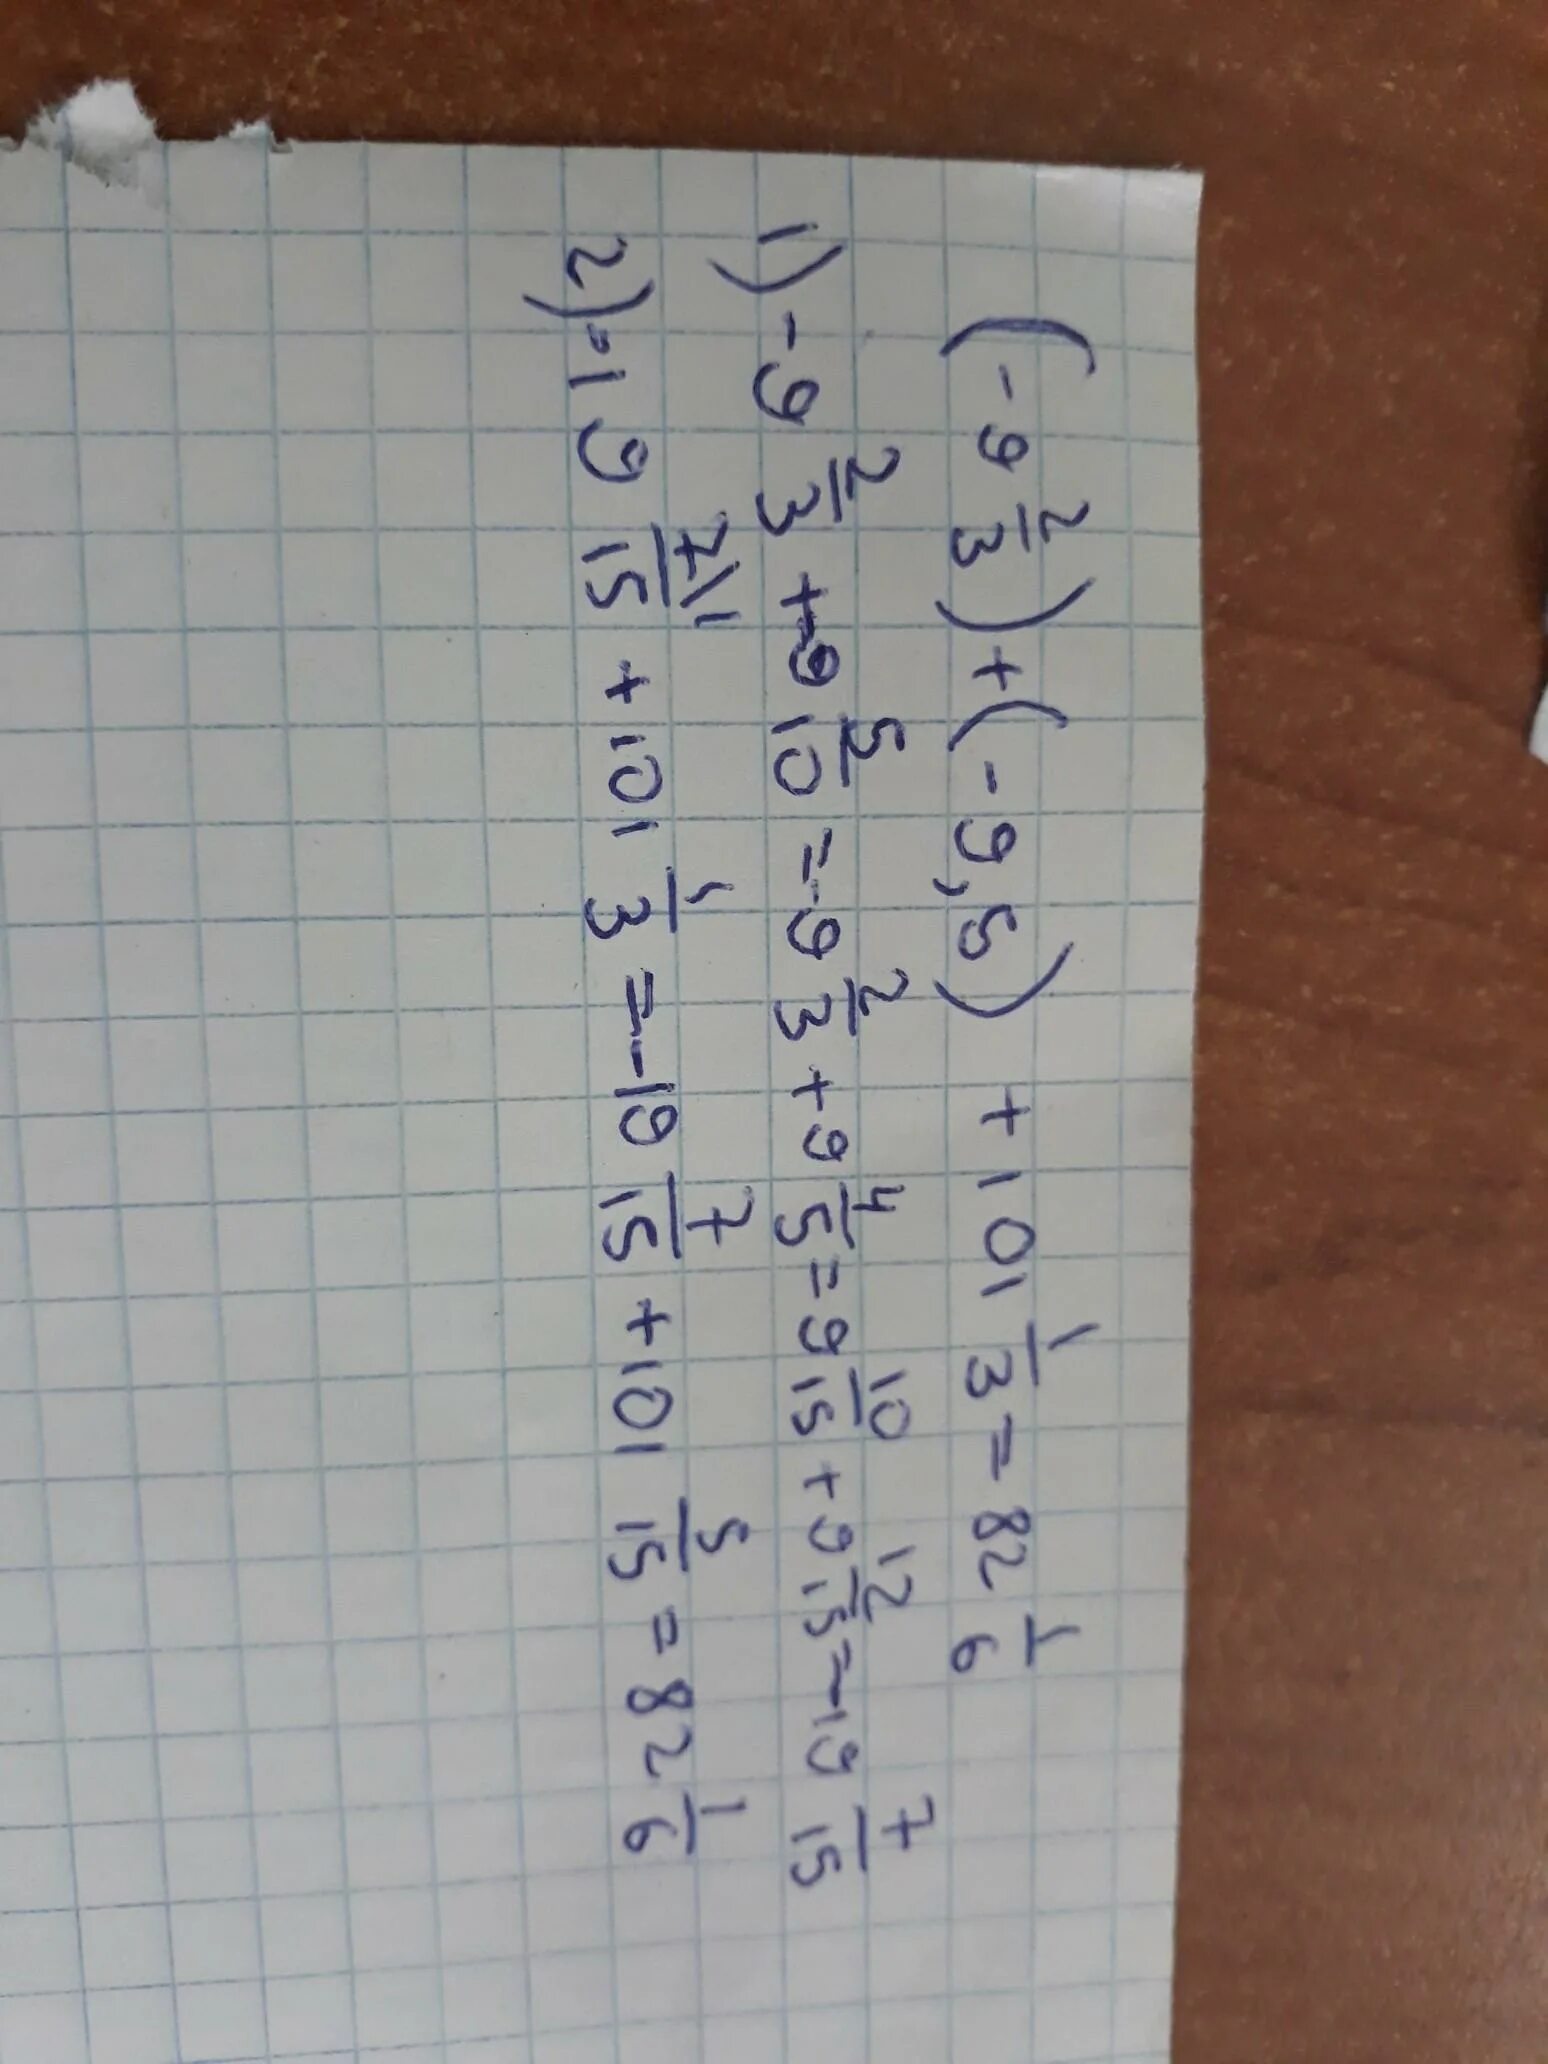 (-9 2/3) + (-9,5) + 101 1/3 = 82 1/6
1) -9 2/3 + -9 5/10 = -9 2/3 + 9 4/5 = 9 10/15 + 9 12/15 = -19 7/15
2) -19 7\1/15 + 101 1/3 = -19 7/15 + 101 5/15 = 82 1/6